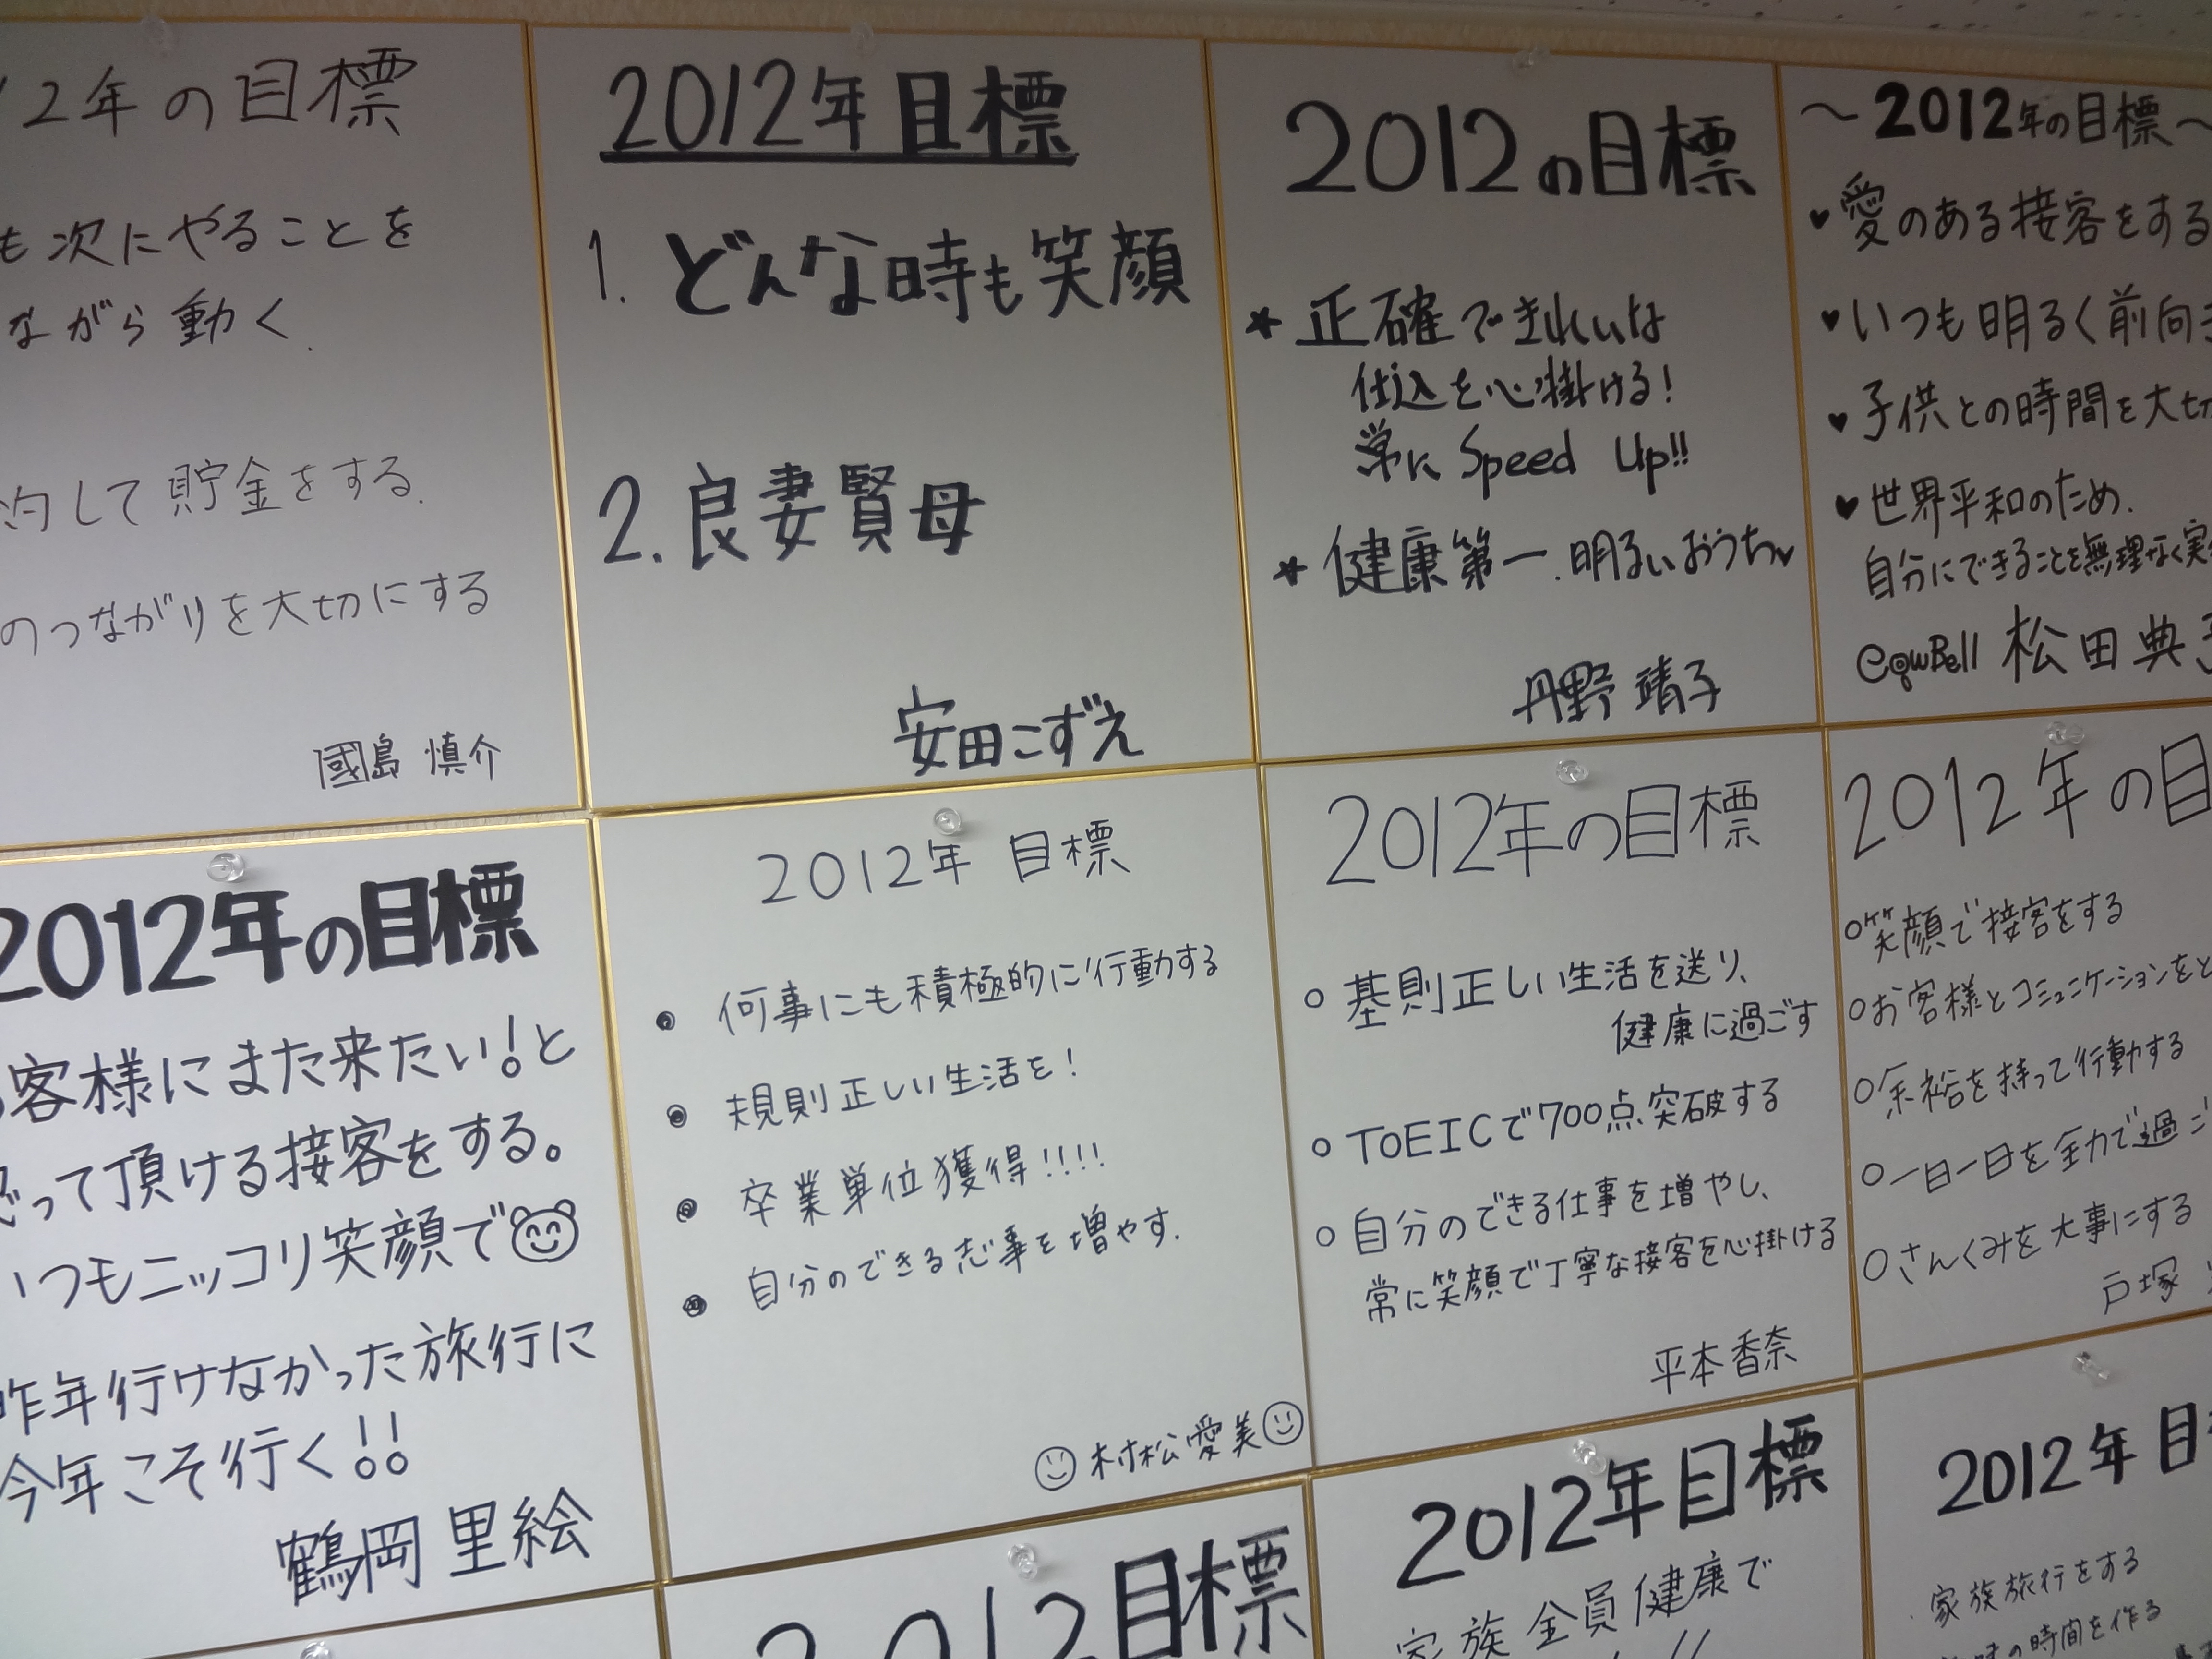 2年の目標
も次にやることを
ながら動く.
約して貯金をする.
のつながりを大切にする
國島 慎介
2012年 目標
1. どんな時も笑顔
2. 良妻賢母
安田こずえ
2012の目標
★ 正確できれいな
仕込を心掛ける!
常に Speed Up!!
★ 健康第一.明るいおうち♥
丹野 靖子
〜2012年の目標〜
♥愛のある接客をする
♥いつも明るく前向き
♥子供との時間を大切
♥世界平和のため.
自分にできることを無理なく実
CowBell 松田典子
2012年の目標
お客様にまた来たい!と
思って頂ける接客をする。
いつもニッコリ笑顔で
昨年行けなかった旅行に
今年こそ行く!!
鶴岡 里絵
2012年 目標
● 何事にも積極的に行動する
● 規則正しい生活を!
● 卒業単位獲得!!!!
● 自分のできる志事を増やす.
村松愛美
2012年の目標
○ 基則正しい生活を送り、
健康に過ごす
○ TOEICで700点突破する
○ 自分のできる仕事を増やし、
常に笑顔で丁寧な接客を心掛ける
平本香奈
2012年の目
○笑顔で接客をする
○お客様とコミュニケーションをと
○余裕を持って行動する
○一日一日を全力で過ご
○さんくみを大事にする
戸塚
2012目標
2012年目標
家族全員健康で
2012年 目
家族旅行をする
の時間を作る